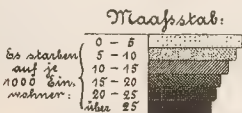 Maaßstab:
Es starben
auf je
1000 Ein,
wohner:
0 – 5
5 – 10
10 – 15
15 – 20
20 – 25
über 25